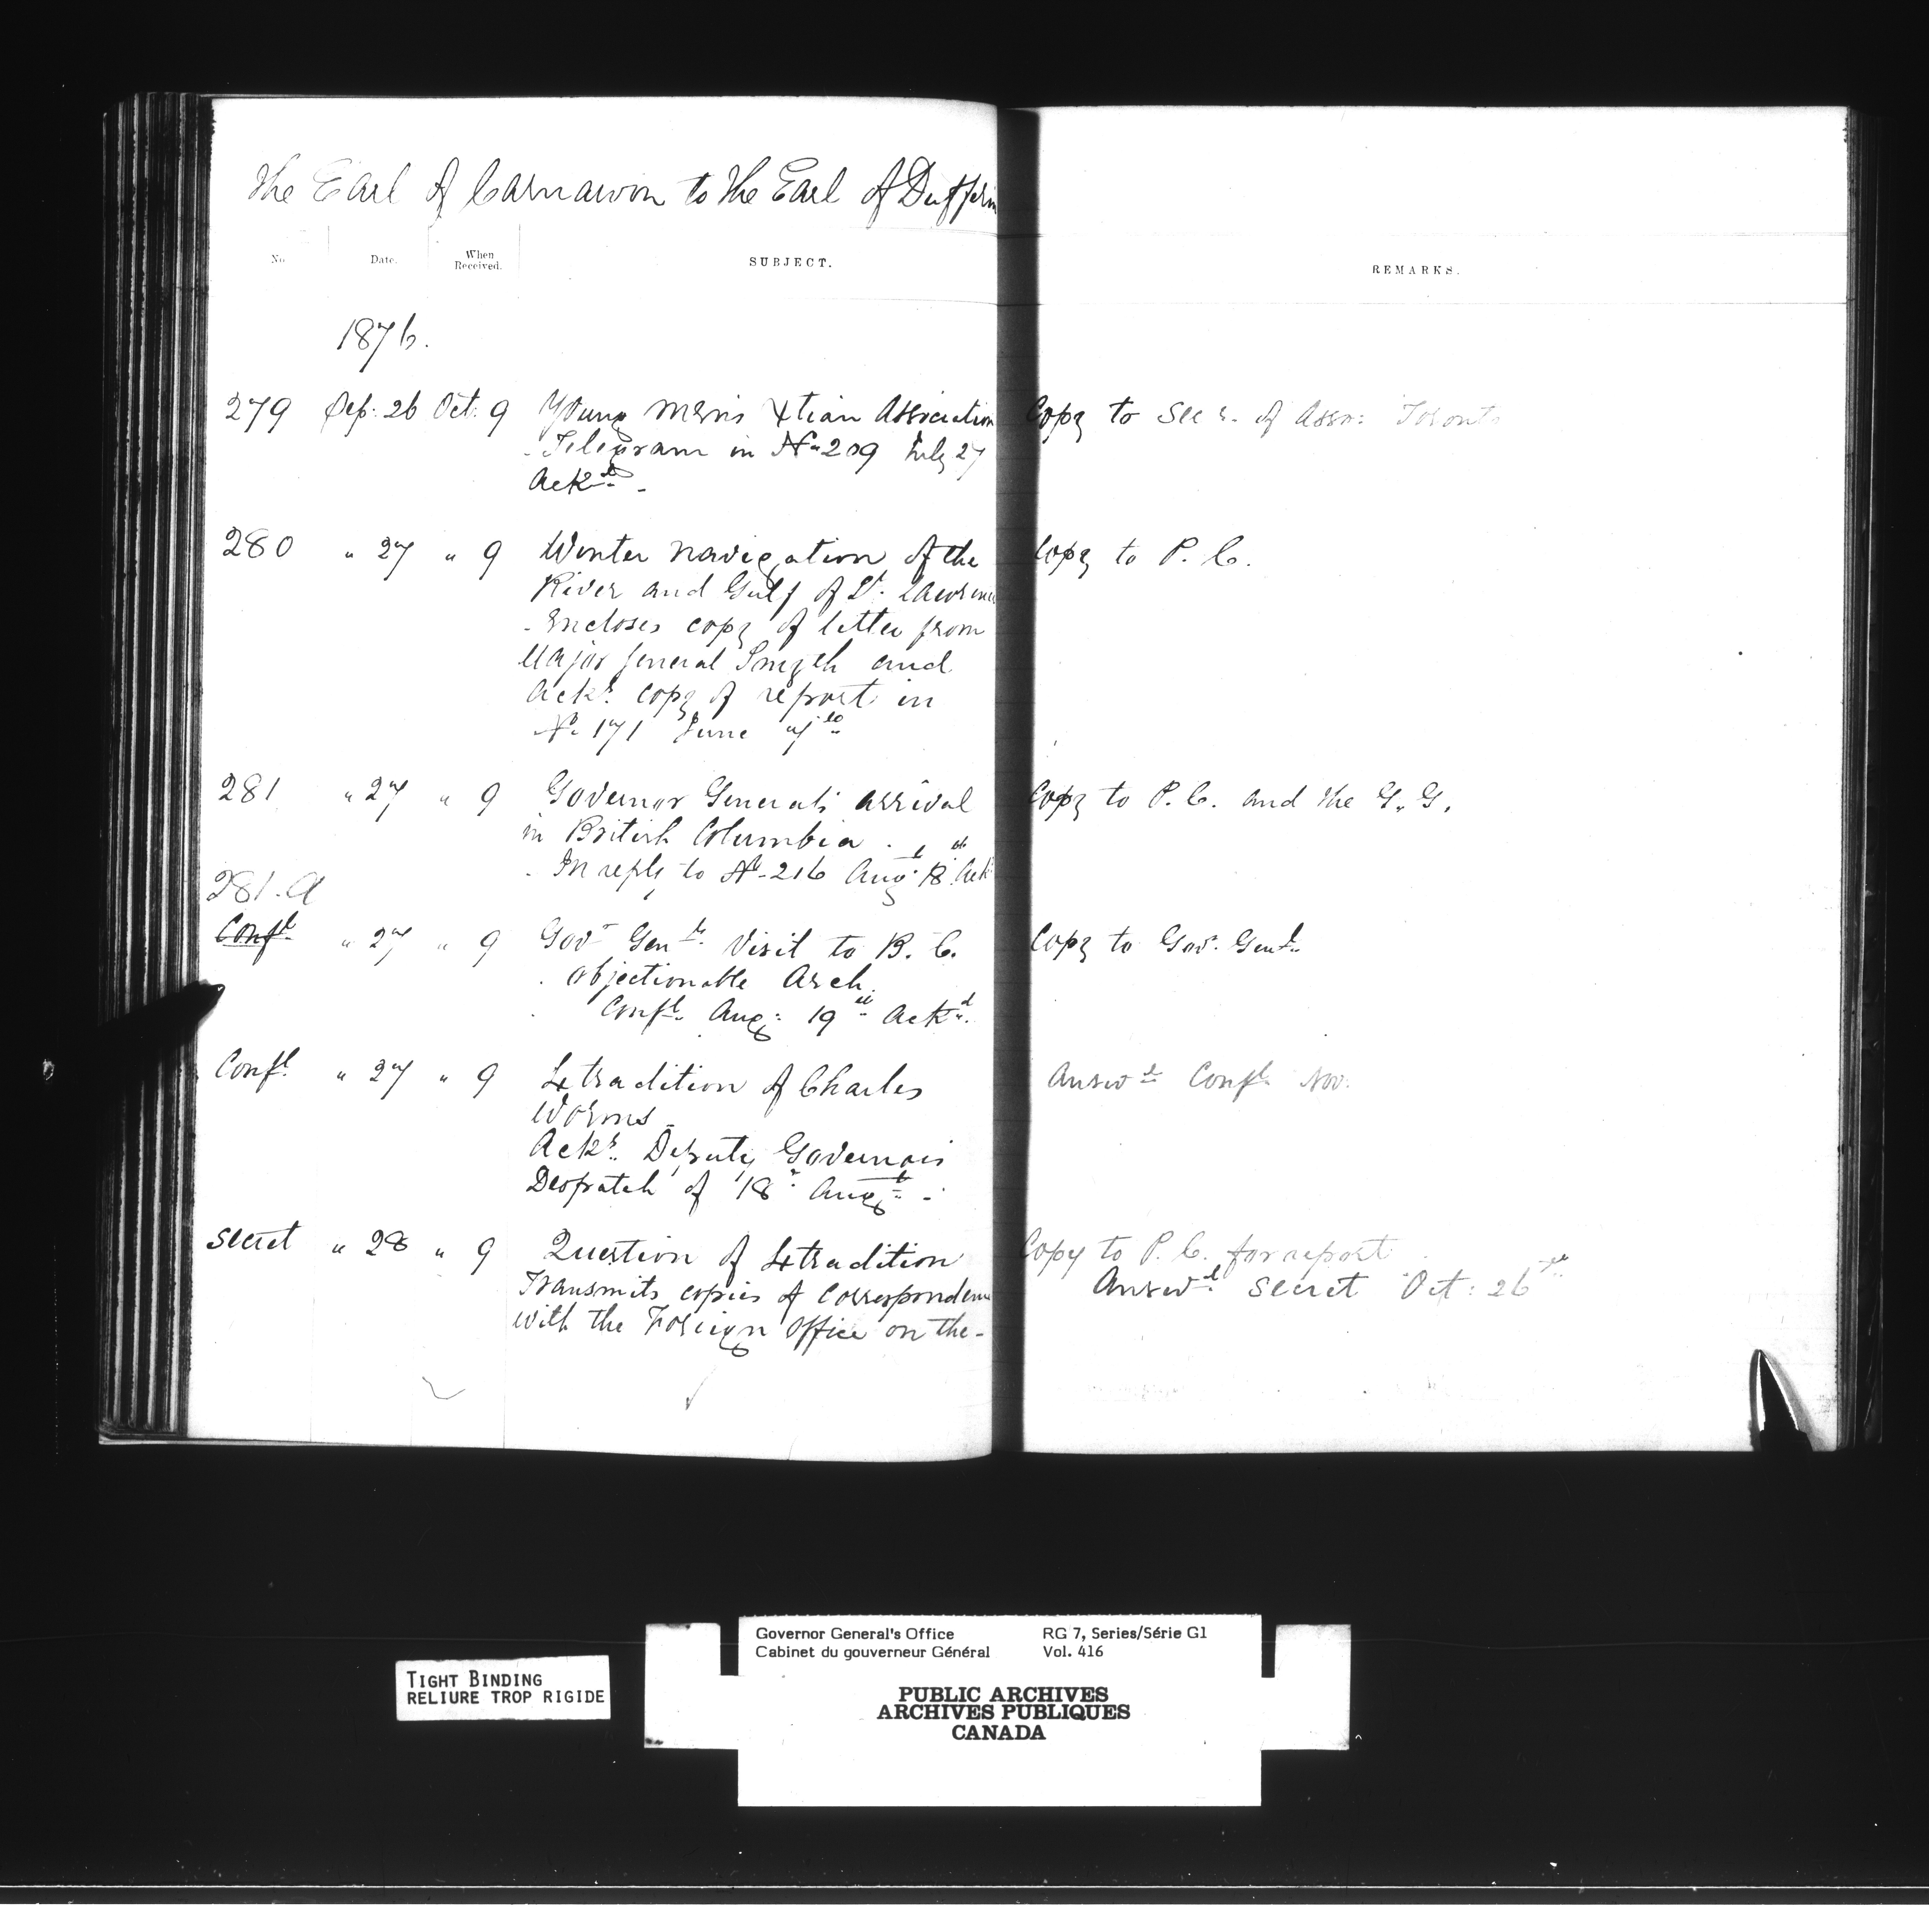 The Earl of Carnarvon to the Earl of Dufferin
No. Date. When Received. SUBJECT. REMARKS.
1876.
279 Sep: 26 Oct: 9 Young Men's Xtian Association Copy to Secy. of Assn: Toronto
- Telegram in No 209 July 27
Ackd. -
280 " 27 " 9 Winter navigation of the Copy to P. C.
River and Gulf of St. Lawrence
- Encloses copy of letter from
Major General Smyth and
Acks. copy of report in
No 171 June
281 " 27 " 9 Governor General's arrival Copy to P. C. and the G. G.
in British Columbia.
- In reply to No 216 Augt 18th Ackd
281.a
Confl. " 27 " 9 Govr Genls. Visit to B. C. Copy to Govr. Genl.
. objectionable Arch.
. Confl. Aug: 19th Ackd.
Confl. " 27 " 9 Extradition of Charles Answd. Confl. Nov:
Worms -
Acks. Deputy Governors
Despatch of 18th Augt. -
Secret " 28 " 9 Question of Extradition Copy to P. C. for report
Transmits copies of Correspondence Answd. Secret Oct: 26th
with the Foreign Office on the -
TIGHT BINDING
RELIURE TROP RIGIDE
Governor General's Office RG 7, Series/Série G1
Cabinet du gouverneur Général Vol. 416
PUBLIC ARCHIVES
ARCHIVES PUBLIQUES
CANADA